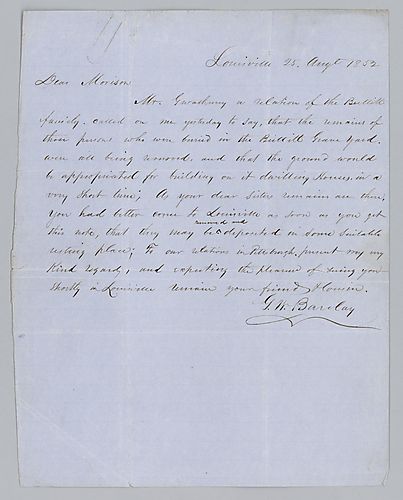 Louisville 25. Augt 1852
Dear Morison
Mr. Gwathmey a relation of the Bullitt
family, called on me yesterday to say, that the remains of
those persons who were buried in the Bullitt Grave Yard,
were all being removed, and that the ground would
be appropriated for building on it dwelling Houses, in a
very short time; As your dear Sisters remains are there,
You had better come to Louisville as soon as you get
removed and
this note, that they may be deposited in some suitable
resting place; To our relations in Pittsburgh, present my
Kind regards, and expecting the pleasure of seeing you
shortly in Louisville remain your friend & Cousin.
G. W. Barclay